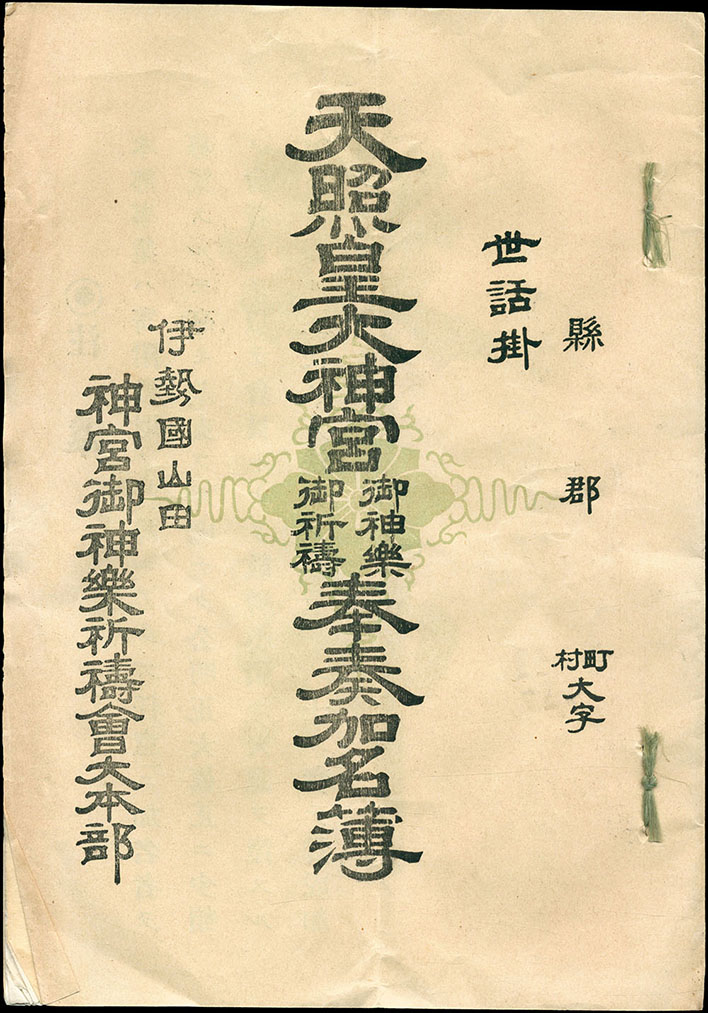 縣　郡　町村大字
世話掛
天照皇大神宮
御神樂
御祈禱
奉奏加名簿
伊勢國山田
神宮御神樂祈禱會大本部